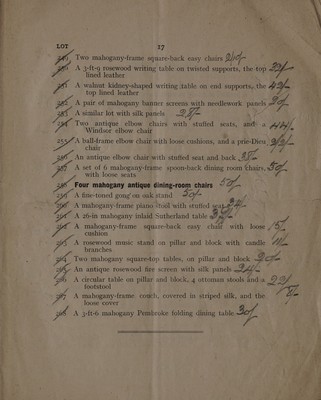 LOT 17
249 Two mahogany-frame square-back easy chairs
250 A 3-ft-9 rosewood writing table on twisted supports, the top
lined leather
251 A walnut kidney-shaped writing table on end supports, the
top lined leather
252 A pair of mahogany banner screens with needlework panels
253 A similar lot with silk panels
254 Two antique elbow chairs with stuffed seats, and a
Windsor elbow chair
255 A ball-frame elbow chair with loose cushions, and a prie-Dieu
chair
256 An antique elbow chair with stuffed seat and back
257 A set of 6 mahogany-frame spoon-back dining room chairs,
with loose seats 50/-
258 Four mahogany antique dining-room chairs 50/-
259 A fine-toned gong on oak stand 50/-
260 A mahogany-frame piano stool with stuffed seat
261 A 26-in mahogany inlaid Sutherland table
262 A mahogany-frame square-back easy chair with loose 15/-
cushion
263 A rosewood music stand on pillar and block with candle
branches
264 Two mahogany square-top tables, on pillar and block
265 An antique rosewood fire screen with silk panels
266 A circular table on pillar and block, 4 ottoman stools and a
footstool
267 A mahogany-frame couch, covered in striped silk, and the
loose cover
268 A 3-ft-6 mahogany Pembroke folding dining table 30/-